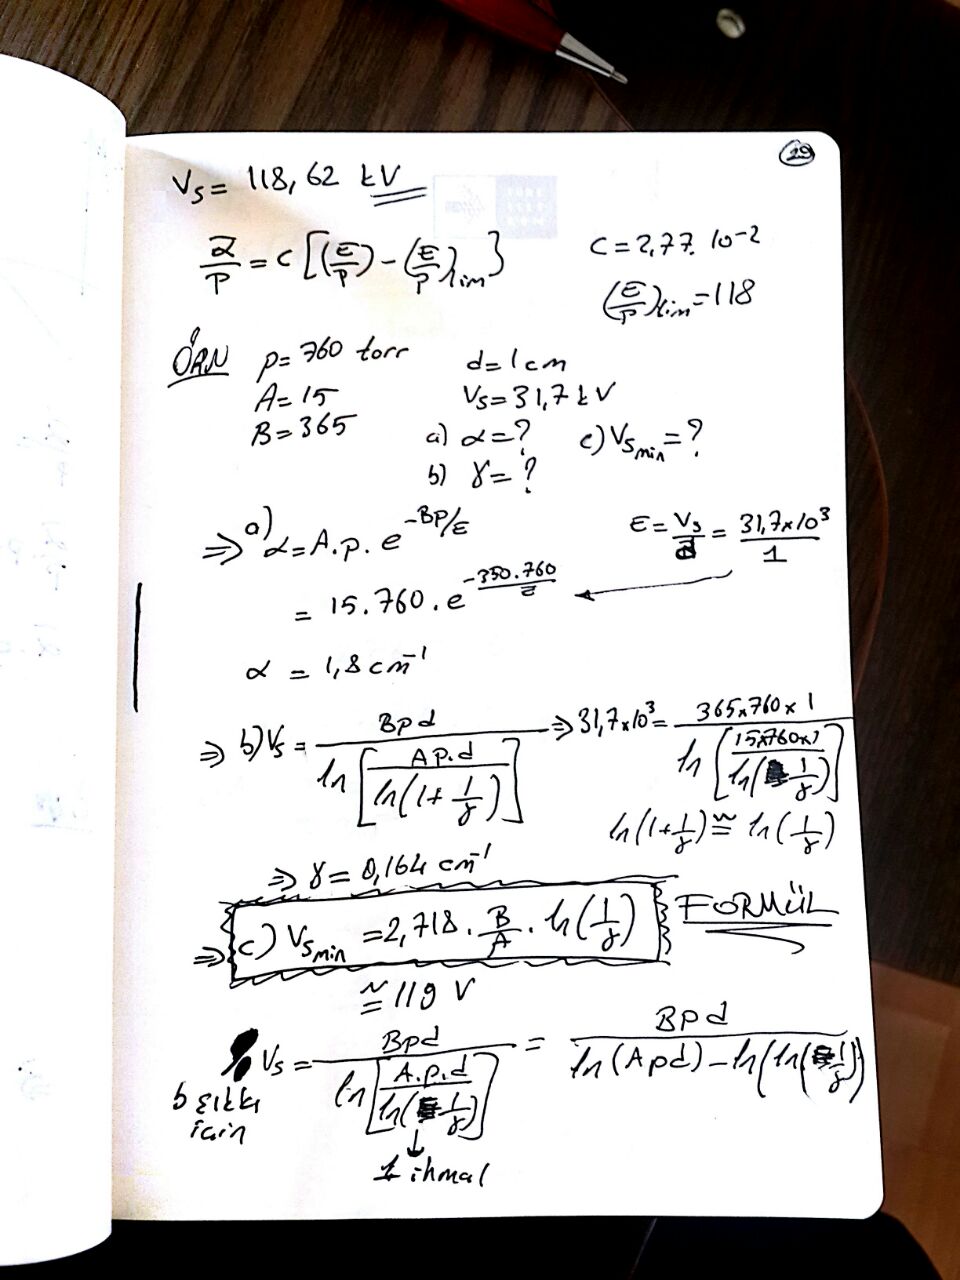 29
Vs= 118,62 kV
ᾱ/P = c [(E/P) - (E/P)lim]
C = 2,77. 10⁻²
(E/P)lim = 118
ÖRN p= 760 torr d= 1 cm
A= 15 Vs= 31,7 kV
B= 365 a) α=? c) Vs min = ?
b) γ= ?
⇒ a) α= A.p. e^(-BP/E) E= Vs/d = 31,7x10³/1
= 15.760. e^(-350.760/E)
α = 1,8 cm⁻¹
⇒ b) Vs = Bpd / ln[A p.d / ln(1+ 1/γ)] ⇒ 31,7x10³ = 365x760x1 / ln[15x760x1 / ln(1/γ)]
ln(1+1/γ) ≅ ln(1/γ)
⇒ γ= 0,164 cm⁻¹
⇒ c) Vs min = 2,718. B/A . ln(1/γ) FORMÜL
≅ 119 V
b şıkkı için Vs = Bpd / ln[A.p.d / ln(1/γ)] = Bpd / ln(Apd) - ln(ln(1/γ))
↓
1 ihmal